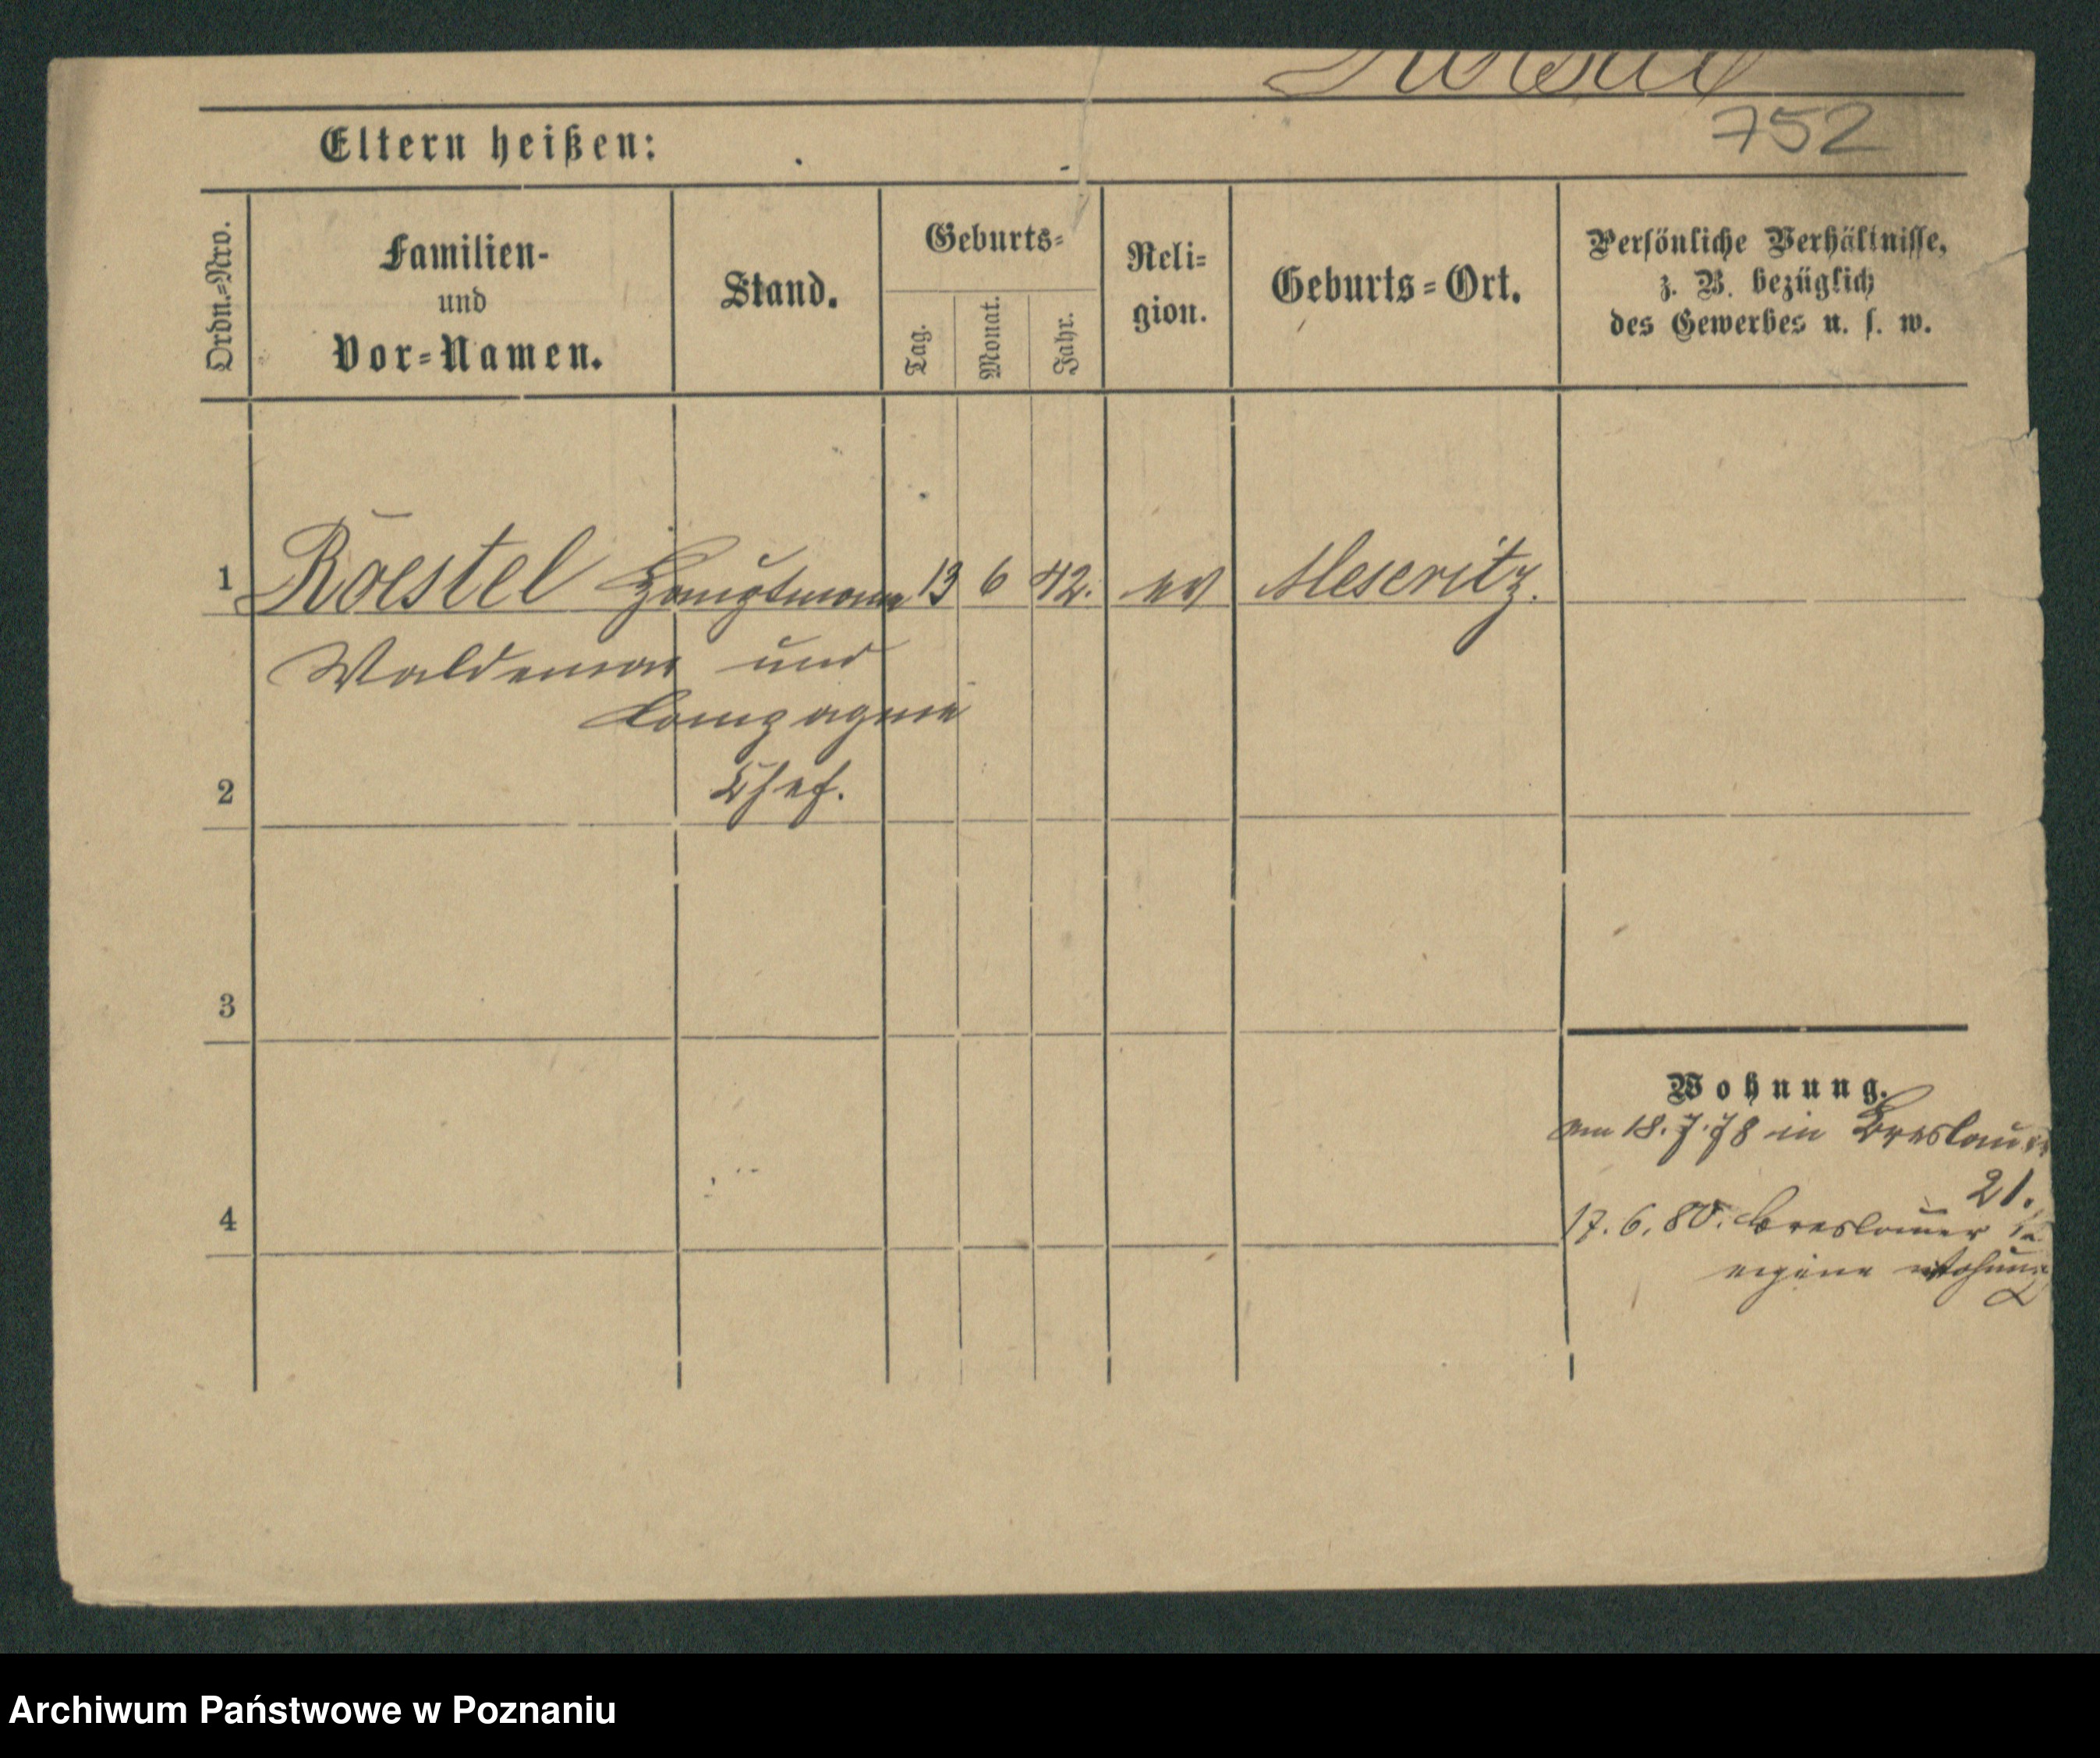 752
Eltern heißen:
Ordn.=Nro.
Familien-
und
Vor=Namen.
Stand.
Geburts=
Tag.
Monat.
Jahr.
Reli=
gion.
Geburts=Ort.
Persönliche Verhältnisse,
z. B. bezüglich
des Gewerbes u. s. w.
1 Roestel Hauptmann 13 6 42. ev Meseritz.
Waldemar und
Compagnie
2 Chef.
3
Wohnung.
am 18. 7. 78 in Breslauer
21.
4 17. 6. 80. Breslauer
eigene Wohnung
Archiwum Państwowe w Poznaniu